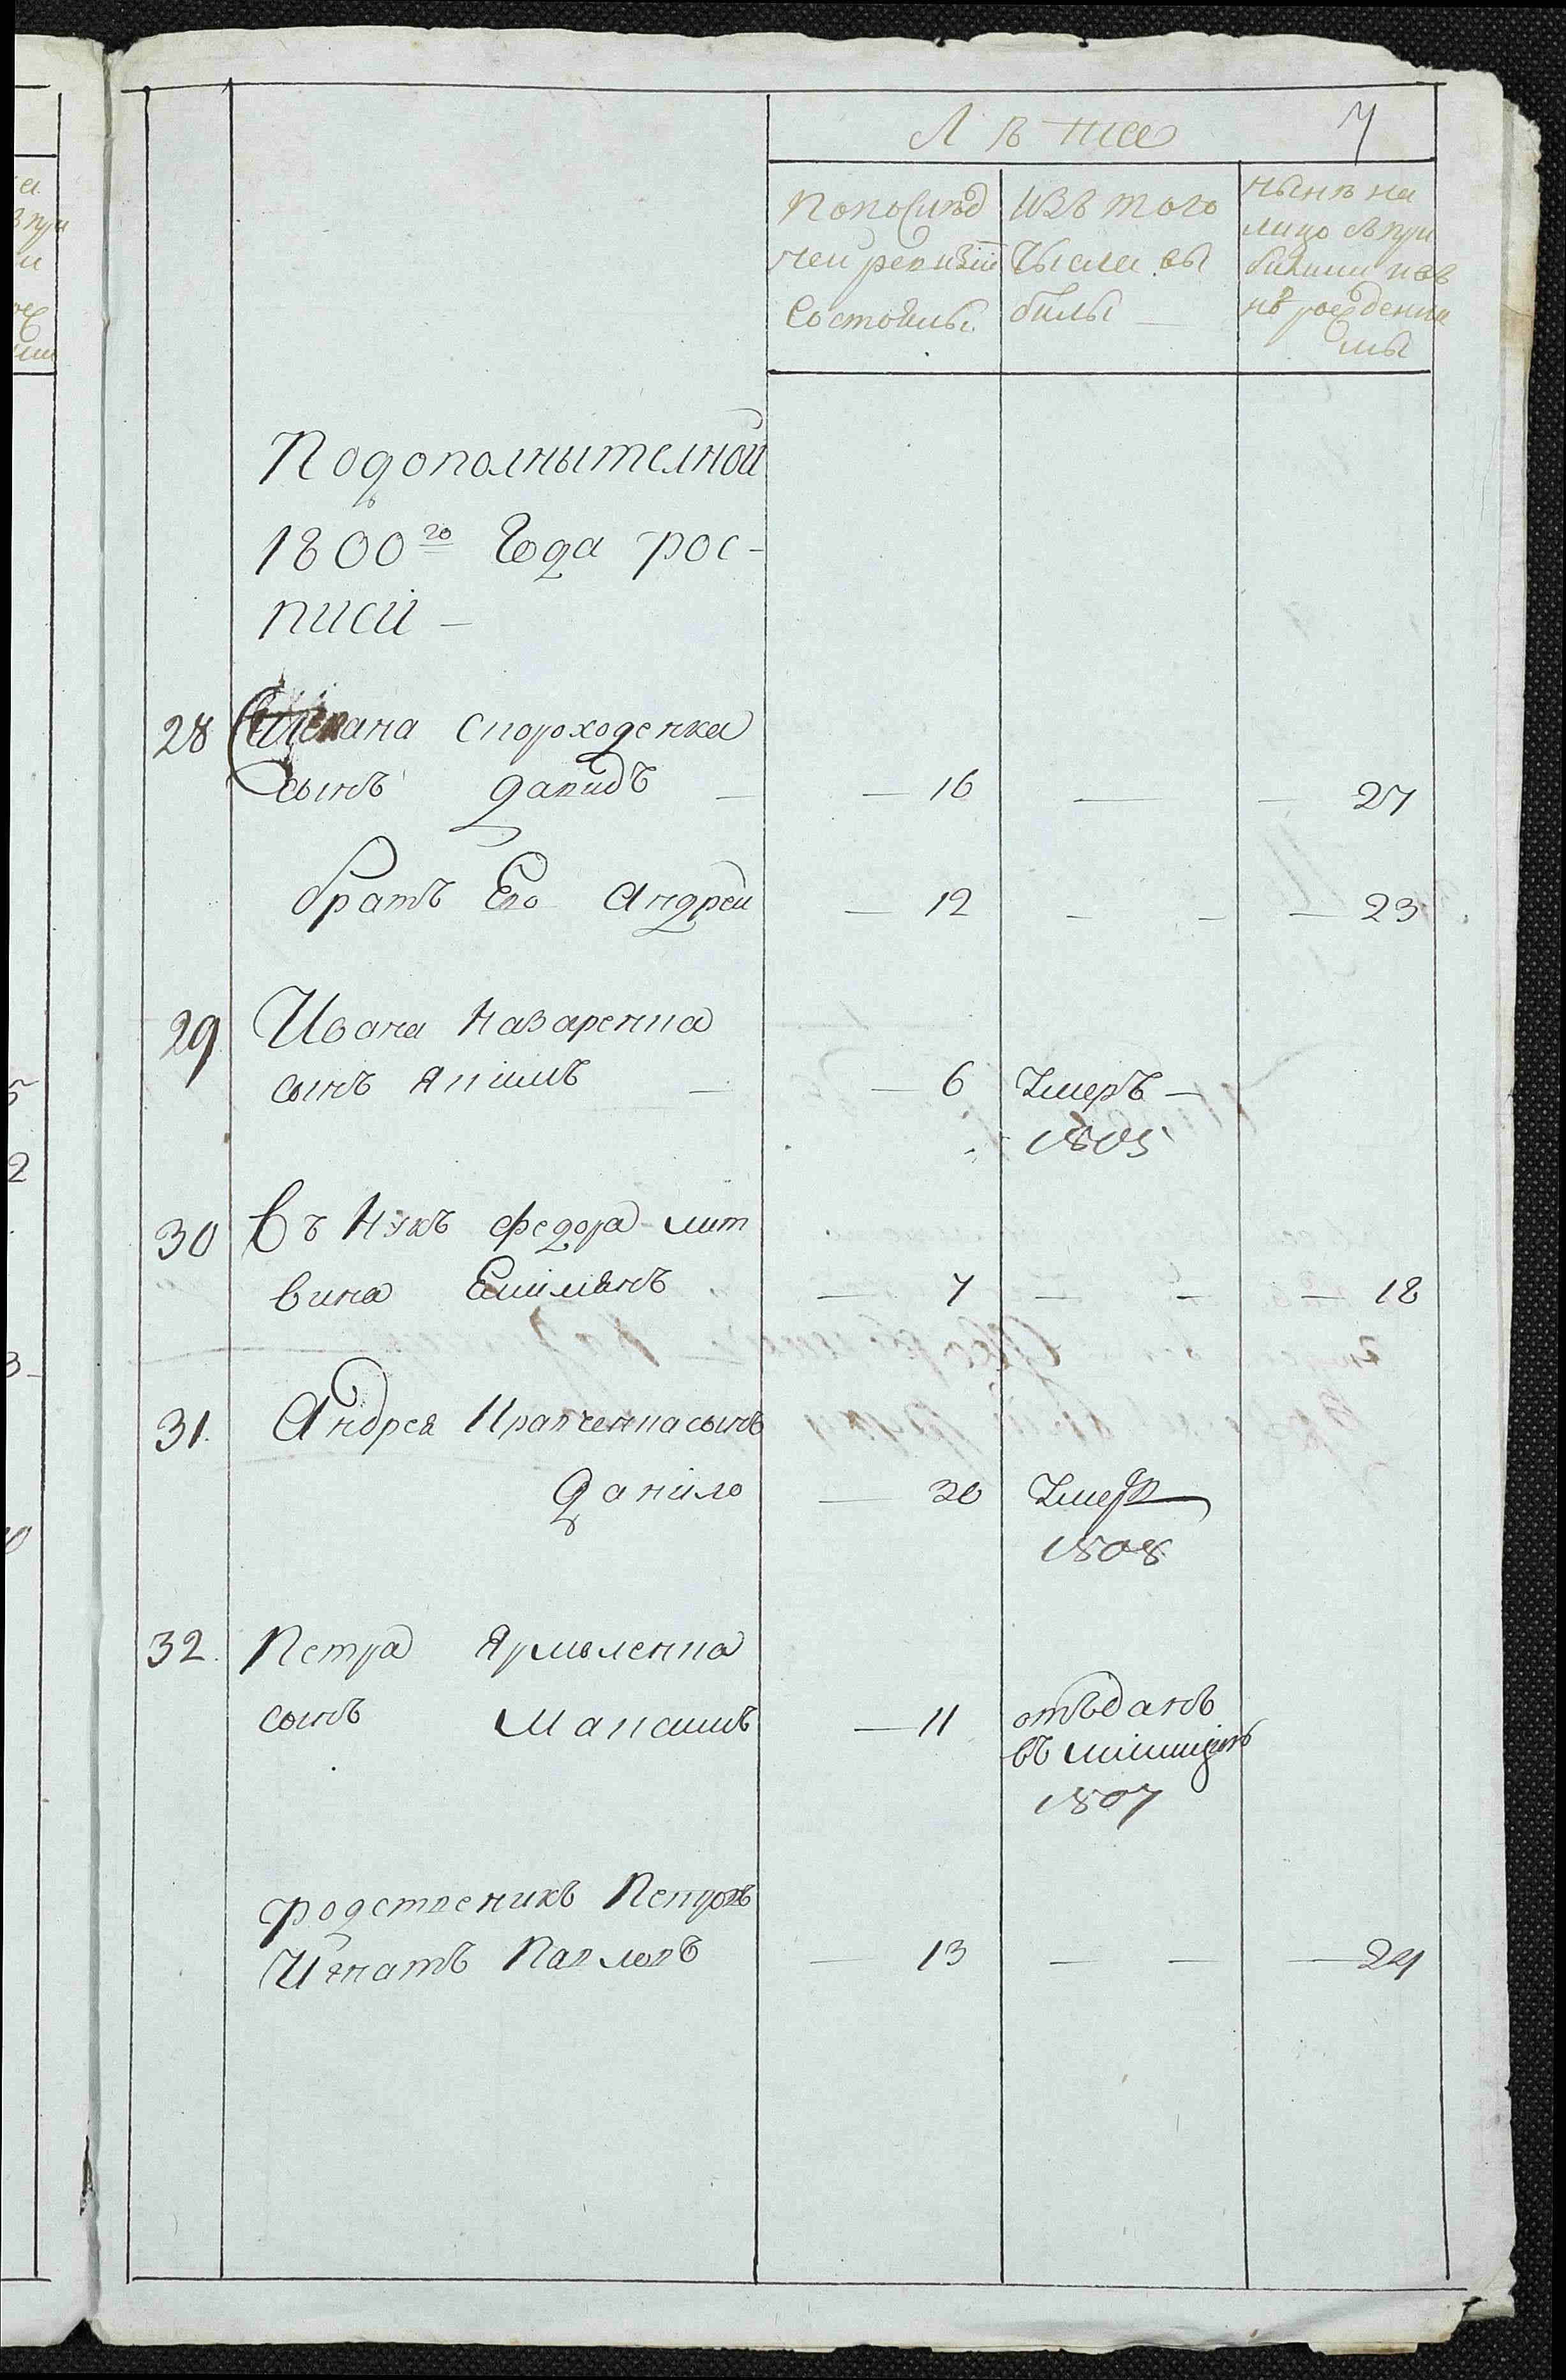 Лѣта 7
По послед
ней ревизіи
состояли.
изъ того
чысла вы
были —
нынѣ на
лицо съ при
билими и въ
нѣ рожденни
мы
Подополнытелной
1800го Года рос-
писи —
28 Степана скороходенка
сынъ давидъ — — 16 — — 27
братъ Его Андреи — 12 - - — 23
29 Ивана Назаренка
сынъ Якимъ — — 6 Умеръ —
1805
30 Внукъ федора лит
вина Емилянъ — 7 — - — 18
31. Андрея Кравченка сынъ
данило — 30 Умеръ
1808
32. Петра Ярмоленка
сынъ Максимъ — 11 отъданъ
въ милицию
1807
родственикъ Петровъ
Игнатъ Павловъ — 13 — — — 24